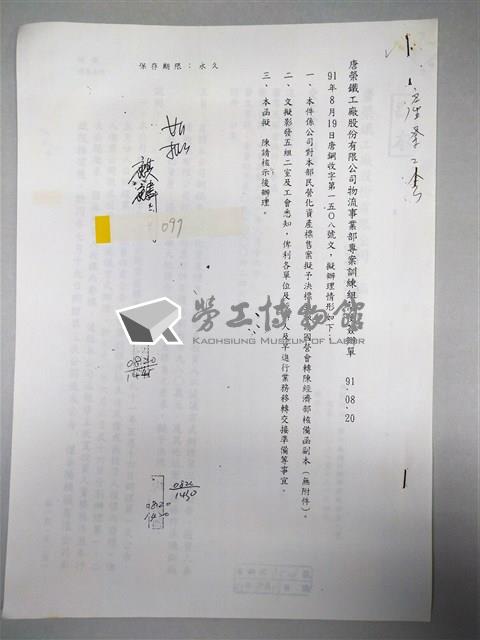 唐榮鐵工廠股份有限公司物流事業部專案訓練組 簽辦單 91.08.20
91年8月19日唐鋼收字第一五〇八號文，擬辦理情形如下：
一、本件係公司對本部民營化資產標售案擬予決標 國營會轉陳經濟部核備函副本（無附件）。
二、文擬影發五組二室及工會悉知，俾利各單位及 人及早進行業務移轉交接準備等事宜。
三、本函擬 陳請核示後辦理。
保存期限：永久
如擬
097
0820
1445
0820
1430
0820
1420
勞工博物館
KAOHSIUNG MUSEUM OF LABOR